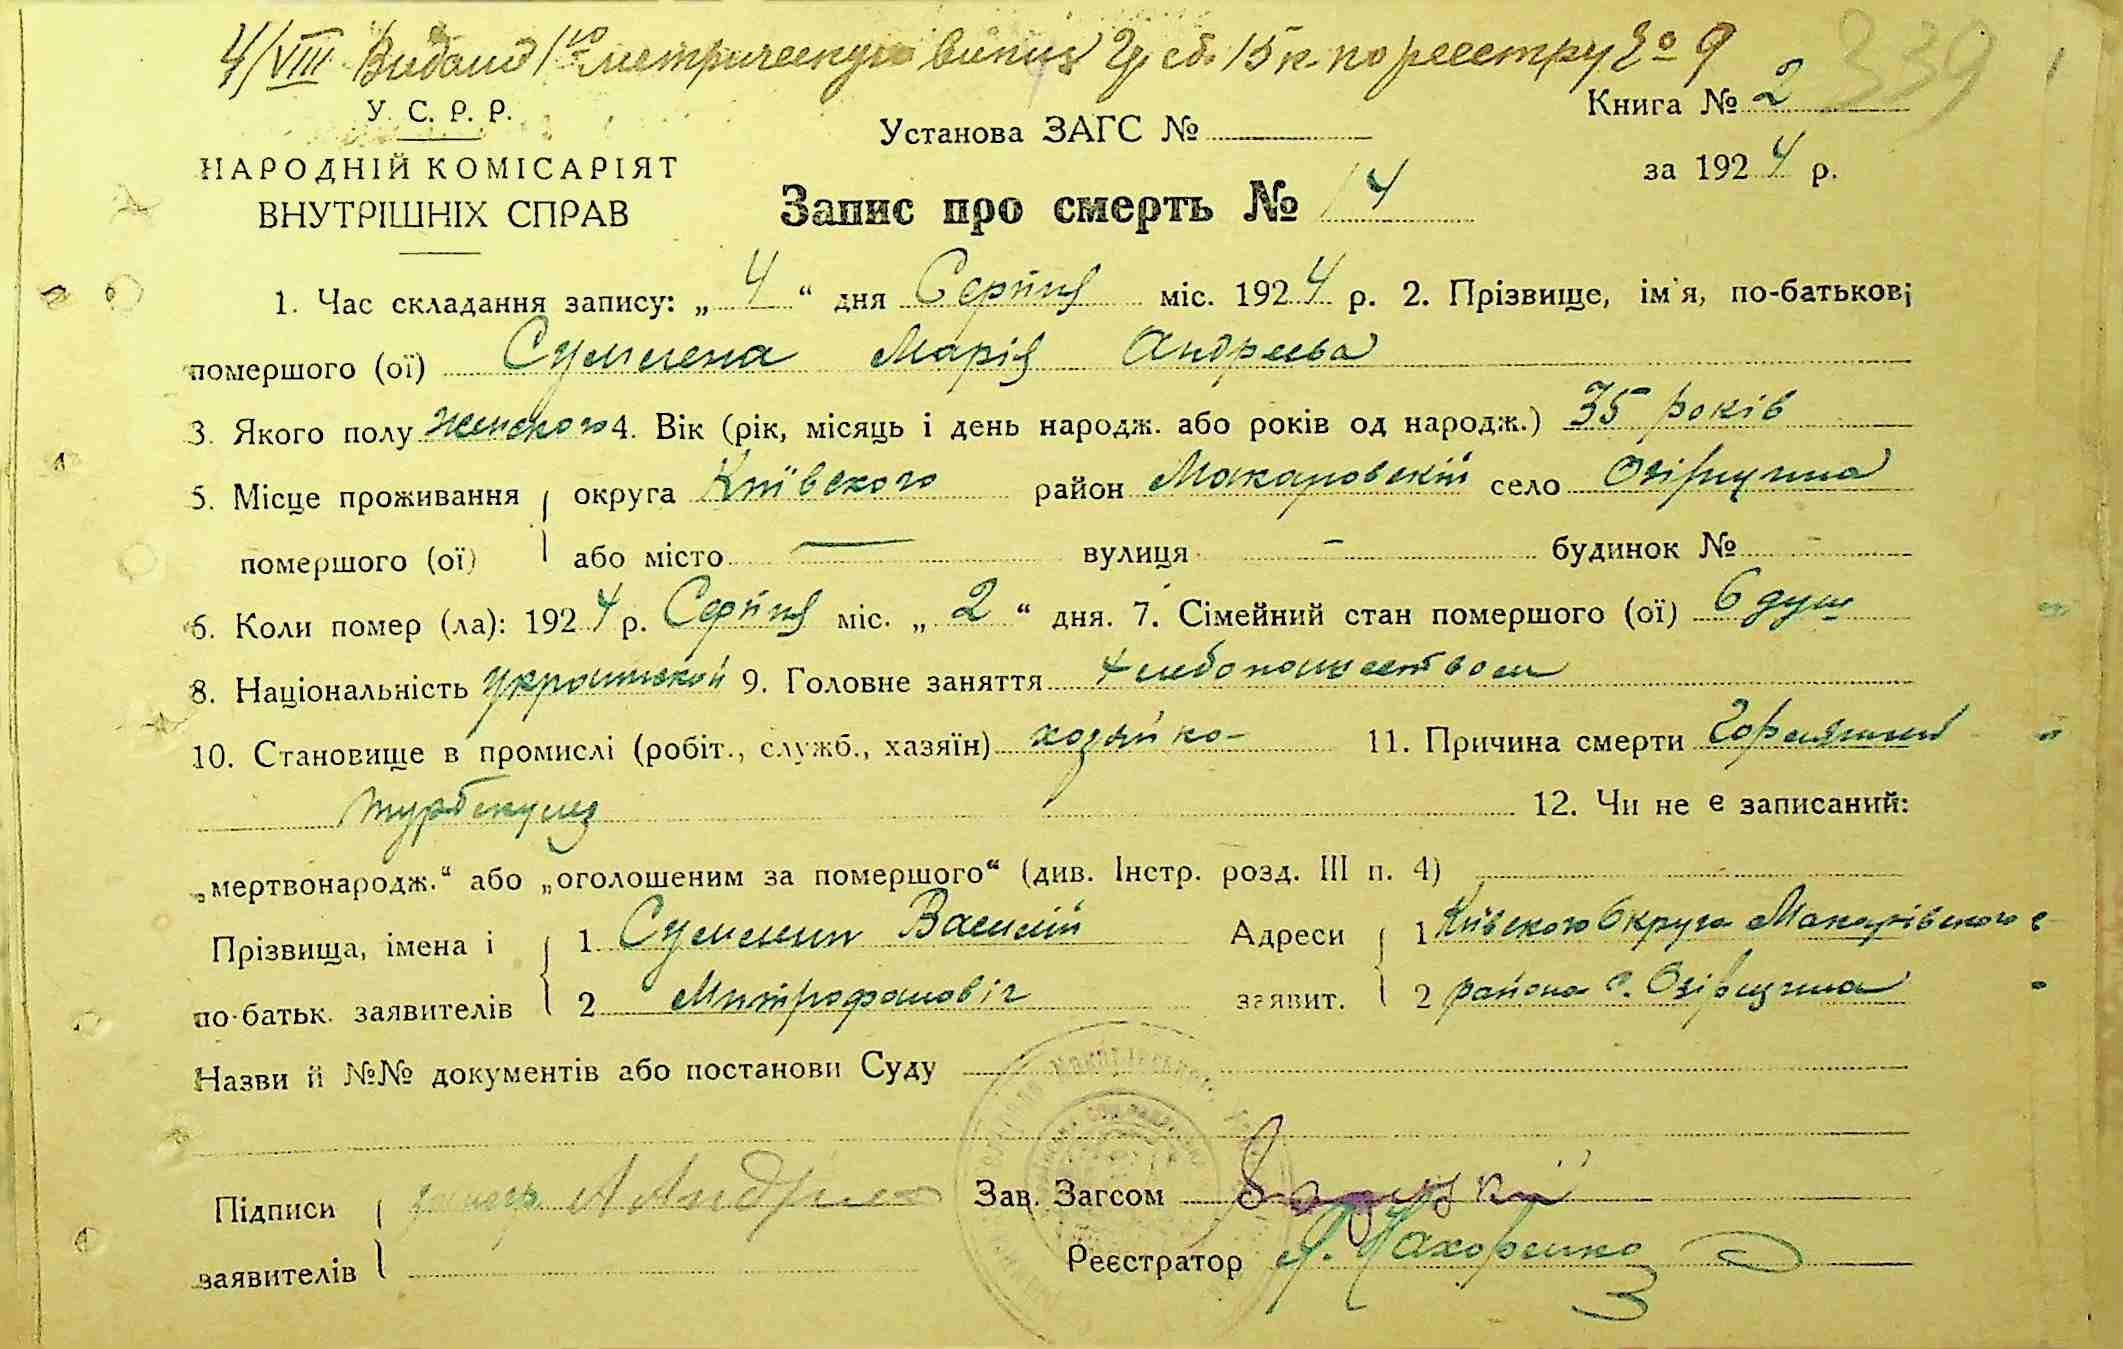 4/VIII Видано 1ую метрическую випис 2р. сб. 15 к. по реестру № 9
339
У. С. Р. Р.
НАРОДНІЙ КОМІСАРІЯТ
ВНУТРІШНІХ СПРАВ
Установа ЗАГС №
Книга № 2
за 1924 р.
Запис про смерть № 14
1. Час складання запису: „ 4 “ дня Серпня міс. 1924 р. 2. Прізвище, ім'я, по-батькові
помершого (ої) Марія Андреева
3. Якого полу женского 4. Вік (рік, місяць і день народж. або років од народж.) 35 років
5. Місце проживання округа Київского район Макаровскій село Озірщина
помершого (ої) або місто — вулиця - будинок № -
6. Коли помер (ла): 1924 р. Серпня міс. „ 2 “ дня. 7. Сімейний стан помершого (ої) 6 душ
8. Національність Украинской 9. Головне заняття Хлебопашеством
10. Становище в промислі (робіт., служб., хазяїн) хозяйка 11. Причина смерти
турбекулез 12. Чи не є записаний:
„мертвонародж.“ або „оголошеним за помершого“ (див. Інстр. розд. III п. 4)
Прізвища, імена і 1 Василій Адреси 1 Київского Округа Макарівского
по-батьк. заявителів 2 Митрофановіч заявит. 2 района с. Озірщина
Назви й №№ документів або постанови Суду
Підписи
Зав. Загсом
заявителів
Реєстратор